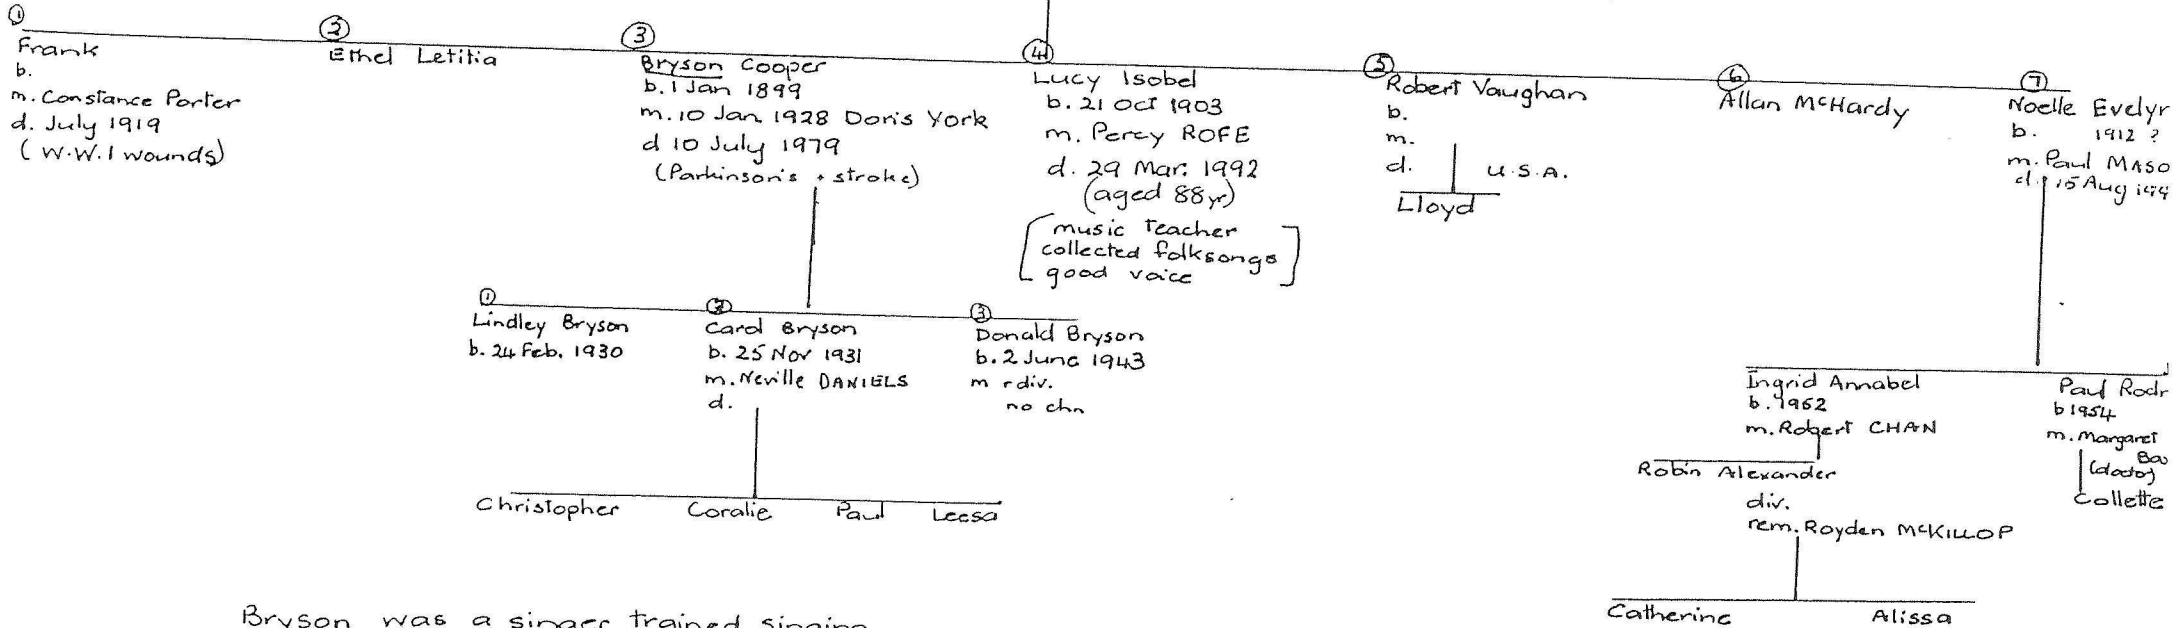 ①
Frank
b.
m. Constance Porter
d. July 1919
(W.W.1 wounds)
②
Ethel Letitia
③
Bryson Cooper
b. 1 Jan 1899
m. 10 Jan 1928 Doris York
d 10 July 1979
(Parkinson's + stroke)
④
Lucy Isobel
b. 21 Oct 1903
m. Percy ROFE
d. 29 Mar. 1992
(aged 88yr)
[music teacher
collected folksongs
good voice]
⑤
Robert Vaughan
b.
m.
d.
U.S.A.
Lloyd
⑥
Allan McHardy
⑦
Noelle Evelyn
b. 1912 ?
m. Paul MASO
d. 15 Aug 199
①
Lindley Bryson
b. 24 Feb. 1930
②
Carol Bryson
b. 25 Nov 1931
m. Neville DANIELS
d.
③
Donald Bryson
b. 2 June 1943
m + div.
no chn
Christopher Coralie Paul Leesa
Ingrid Annabel
b. 1952
m. Robert CHAN
Robin Alexander
div.
rem. Royden McKILLOP
Catherine Alissa
Paul Rodr
b 1954
m. Margaret
Bow
(doctor)
Collette
Bryson was a singer trained singing